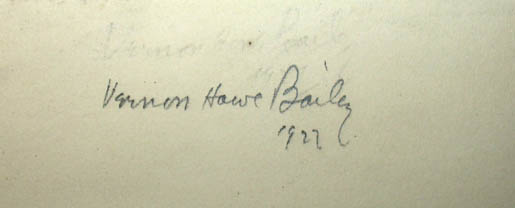 Vernon Howe Bailey
1927